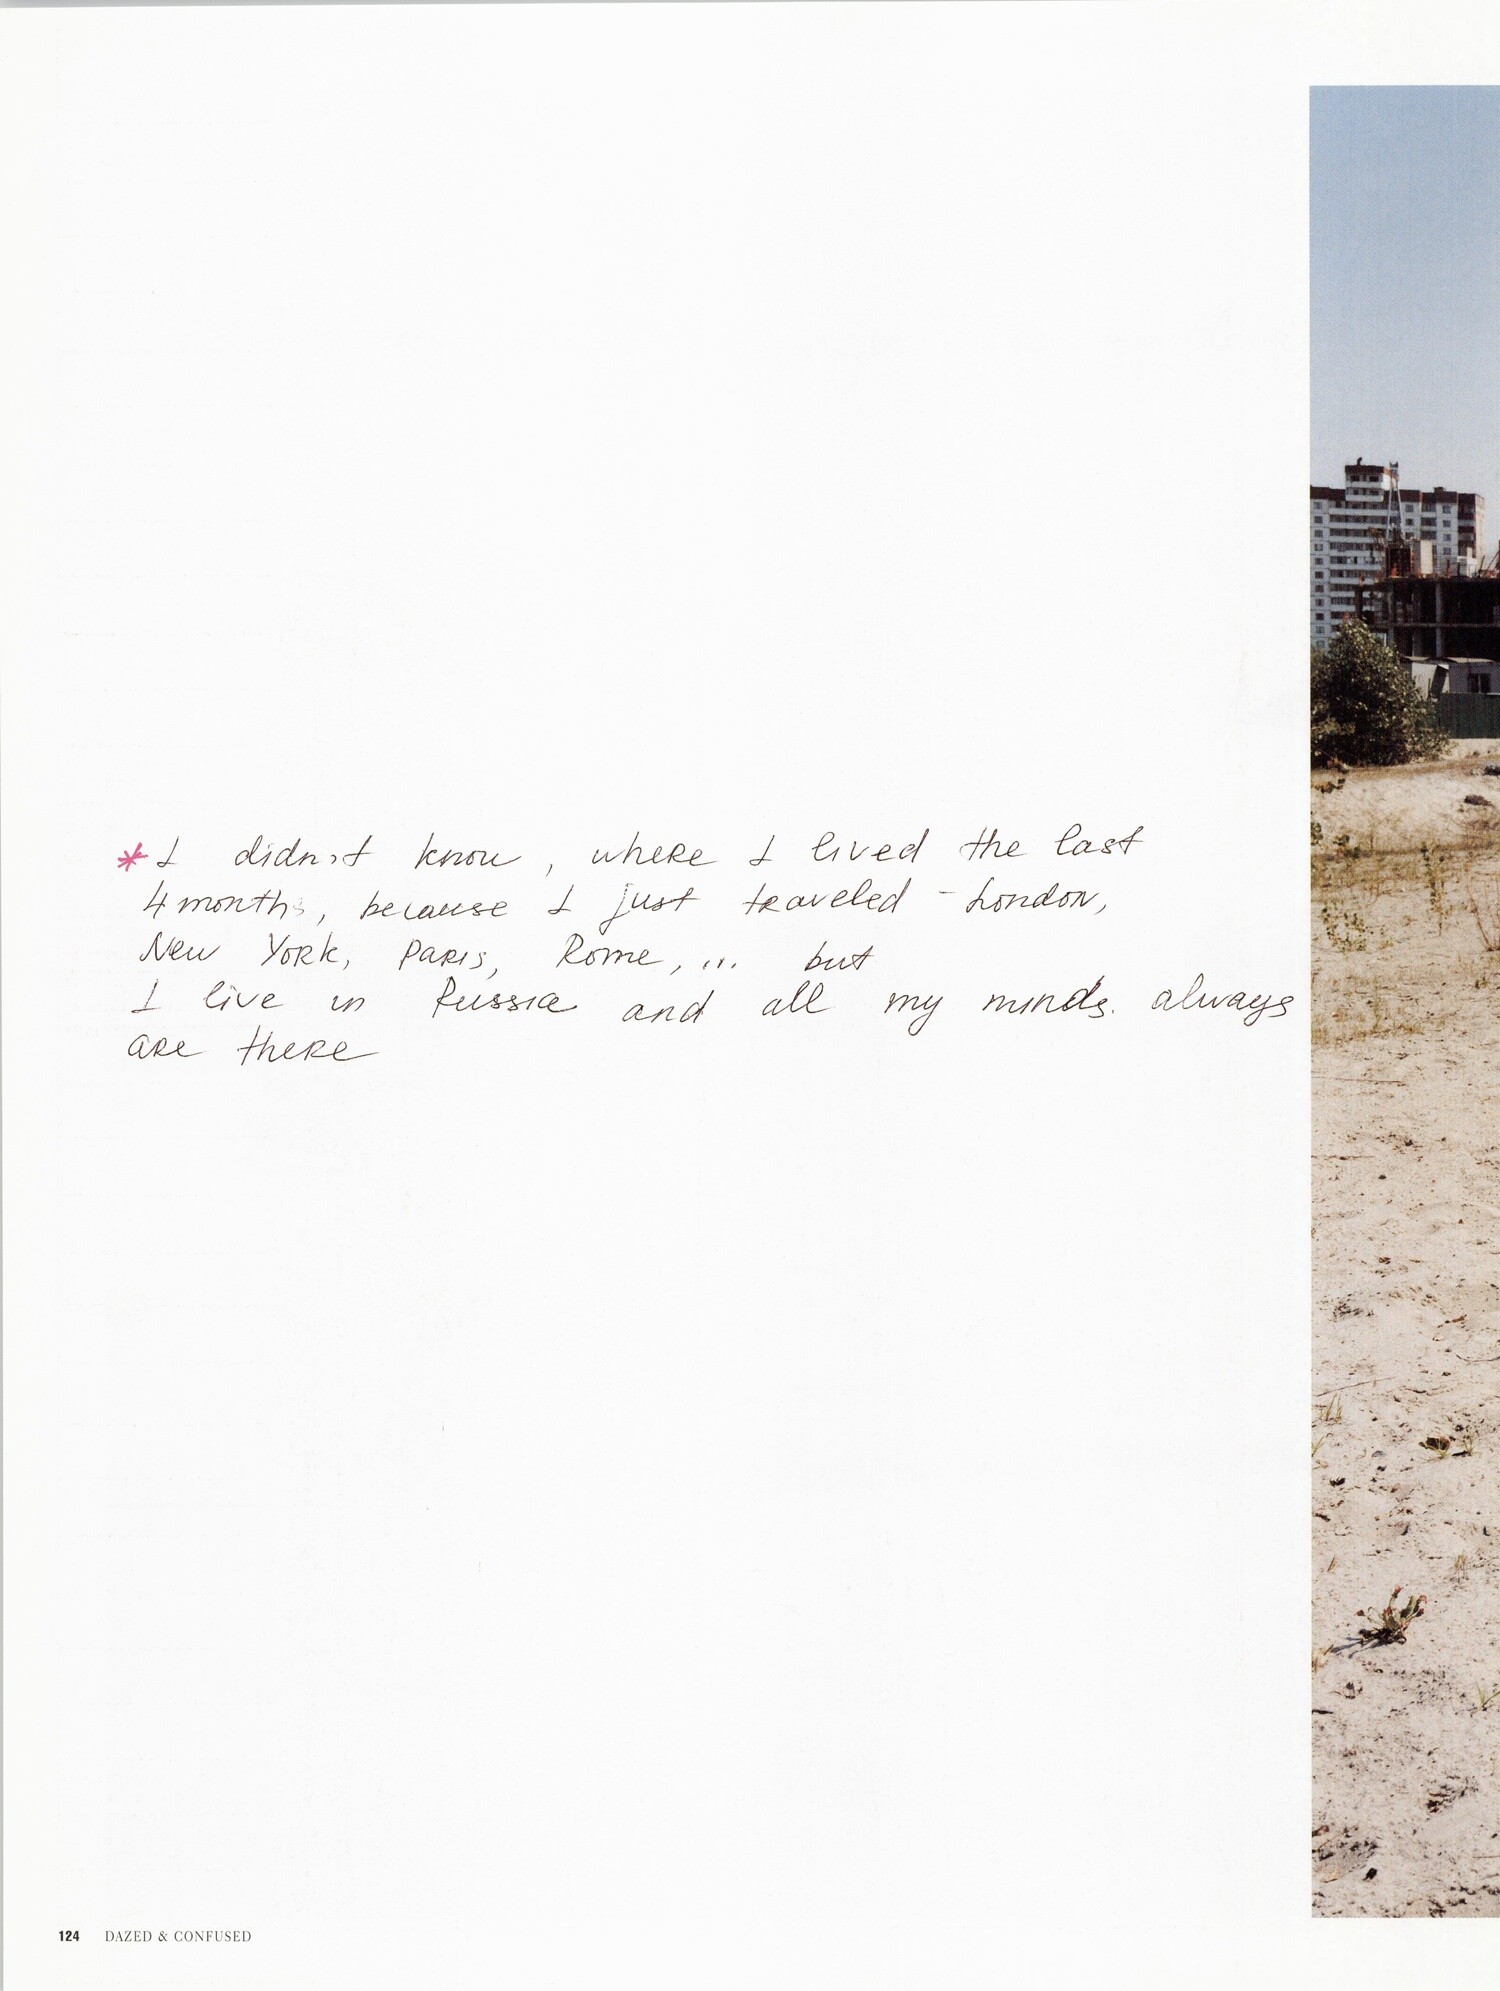 *I didn't know, where I lived the last
4 months, because I just traveled - London,
New York, Paris, Rome, ... but
I live in Russia and all my minds. always
are there
124 DAZED & CONFUSED